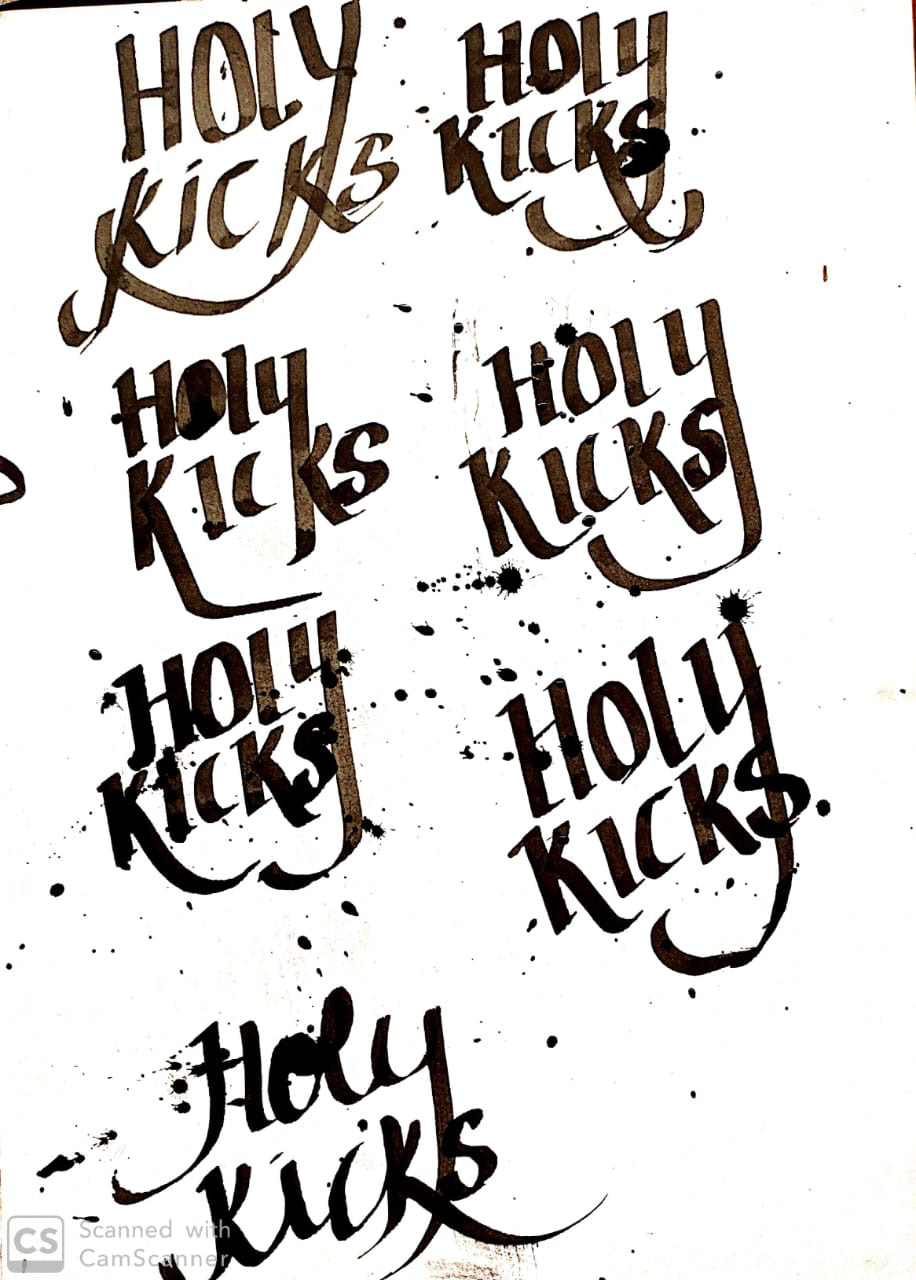 HOLY
KiCKS
HOLY
KICKS
HOLY
KICKS
HOLY
KICKS
HOLY
KICKS
HOLY
KICKS
Holy
Kicks
CS Scanned with
CamScanner